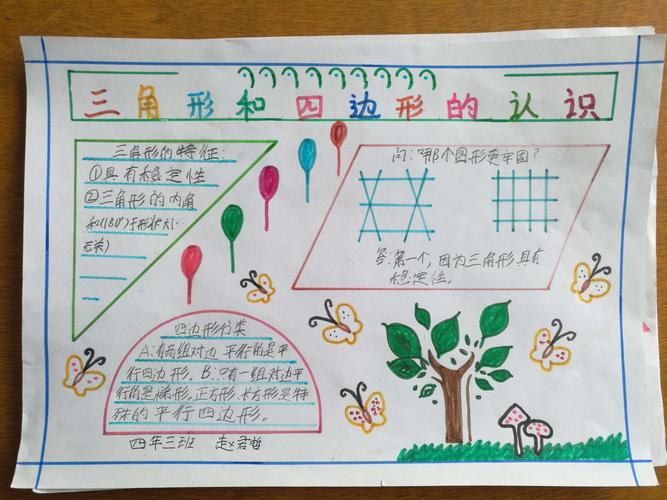 三角形和四边形的认识
三角形的特征:
①具有稳定性
②三角形的内角
和(180°)于形状大小
无关)
问:哪个图形更牢固?
答:第一个,因为三角形具有
稳定性。
四边形分类
A:有两组对边平行的是平
行四边形,B:只有一组对边平
行的是梯形。正方形、长方形是特
殊的平行四边形。
四年三班